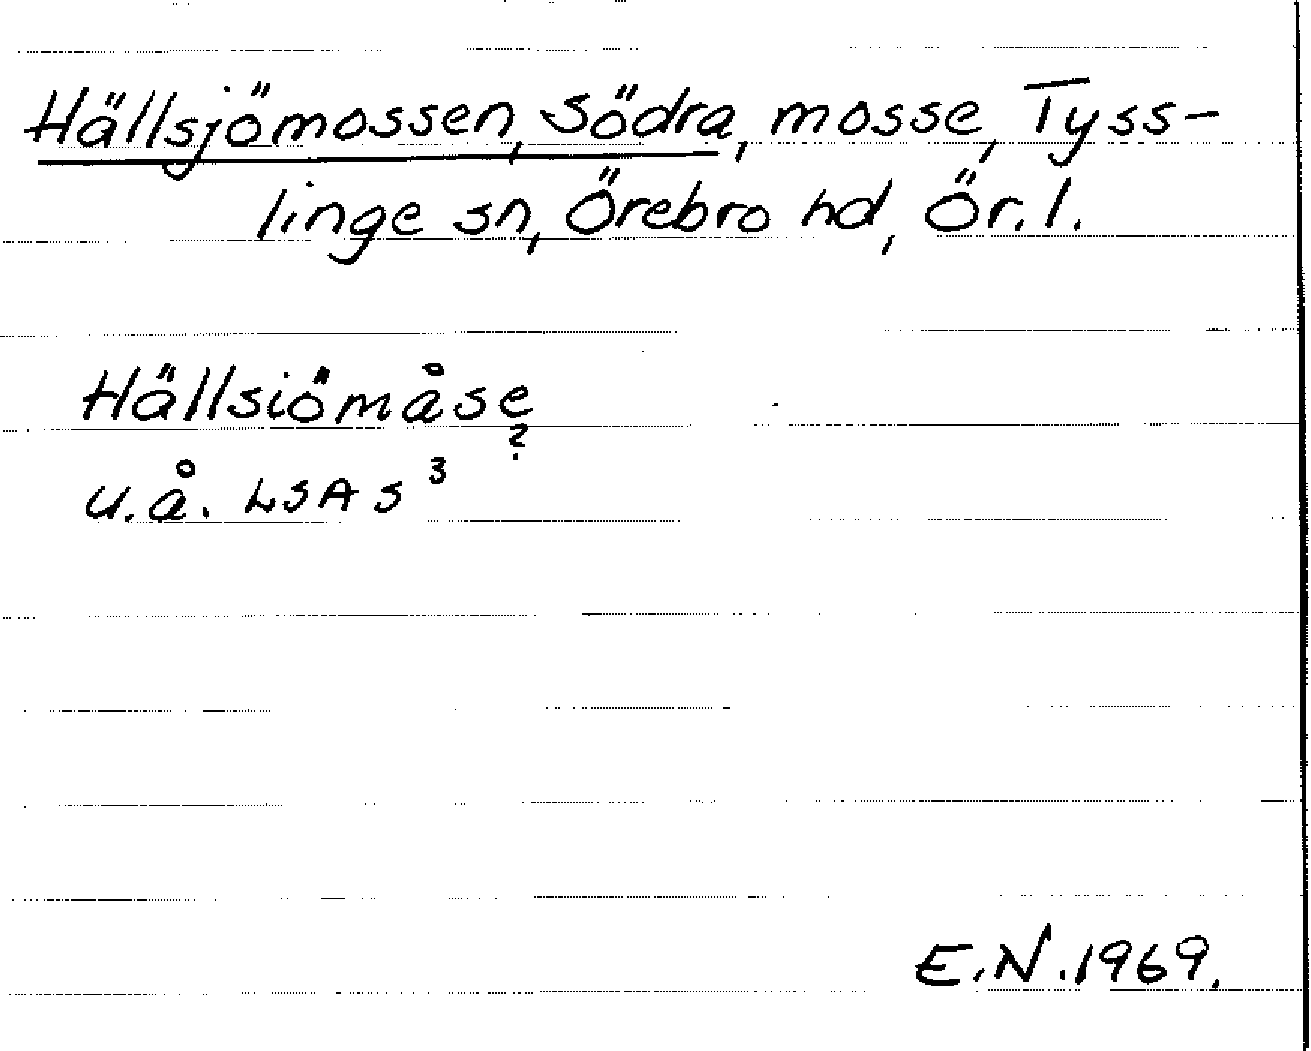 Hällsjömossen, Södra, mosse, Tyss-
linge sn, Örebro hd, Ör.l.
Hällsiömåse
?
u.å. LSA S 3
E.N.1969.